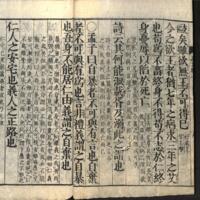 矣雖欲無王不可得已
今之欲王者猶七年之病求三年之艾
也苟為不畜終身不得苟不志於仁終
身憂辱以陷於死亡
詩云其何能淑載胥及溺此之謂也
○孟子曰自暴者不可與有言也自棄
者不可與有為也言非禮義謂之自暴
也吾身不能居仁由義謂之自棄也
仁人之安宅也義人之正路也